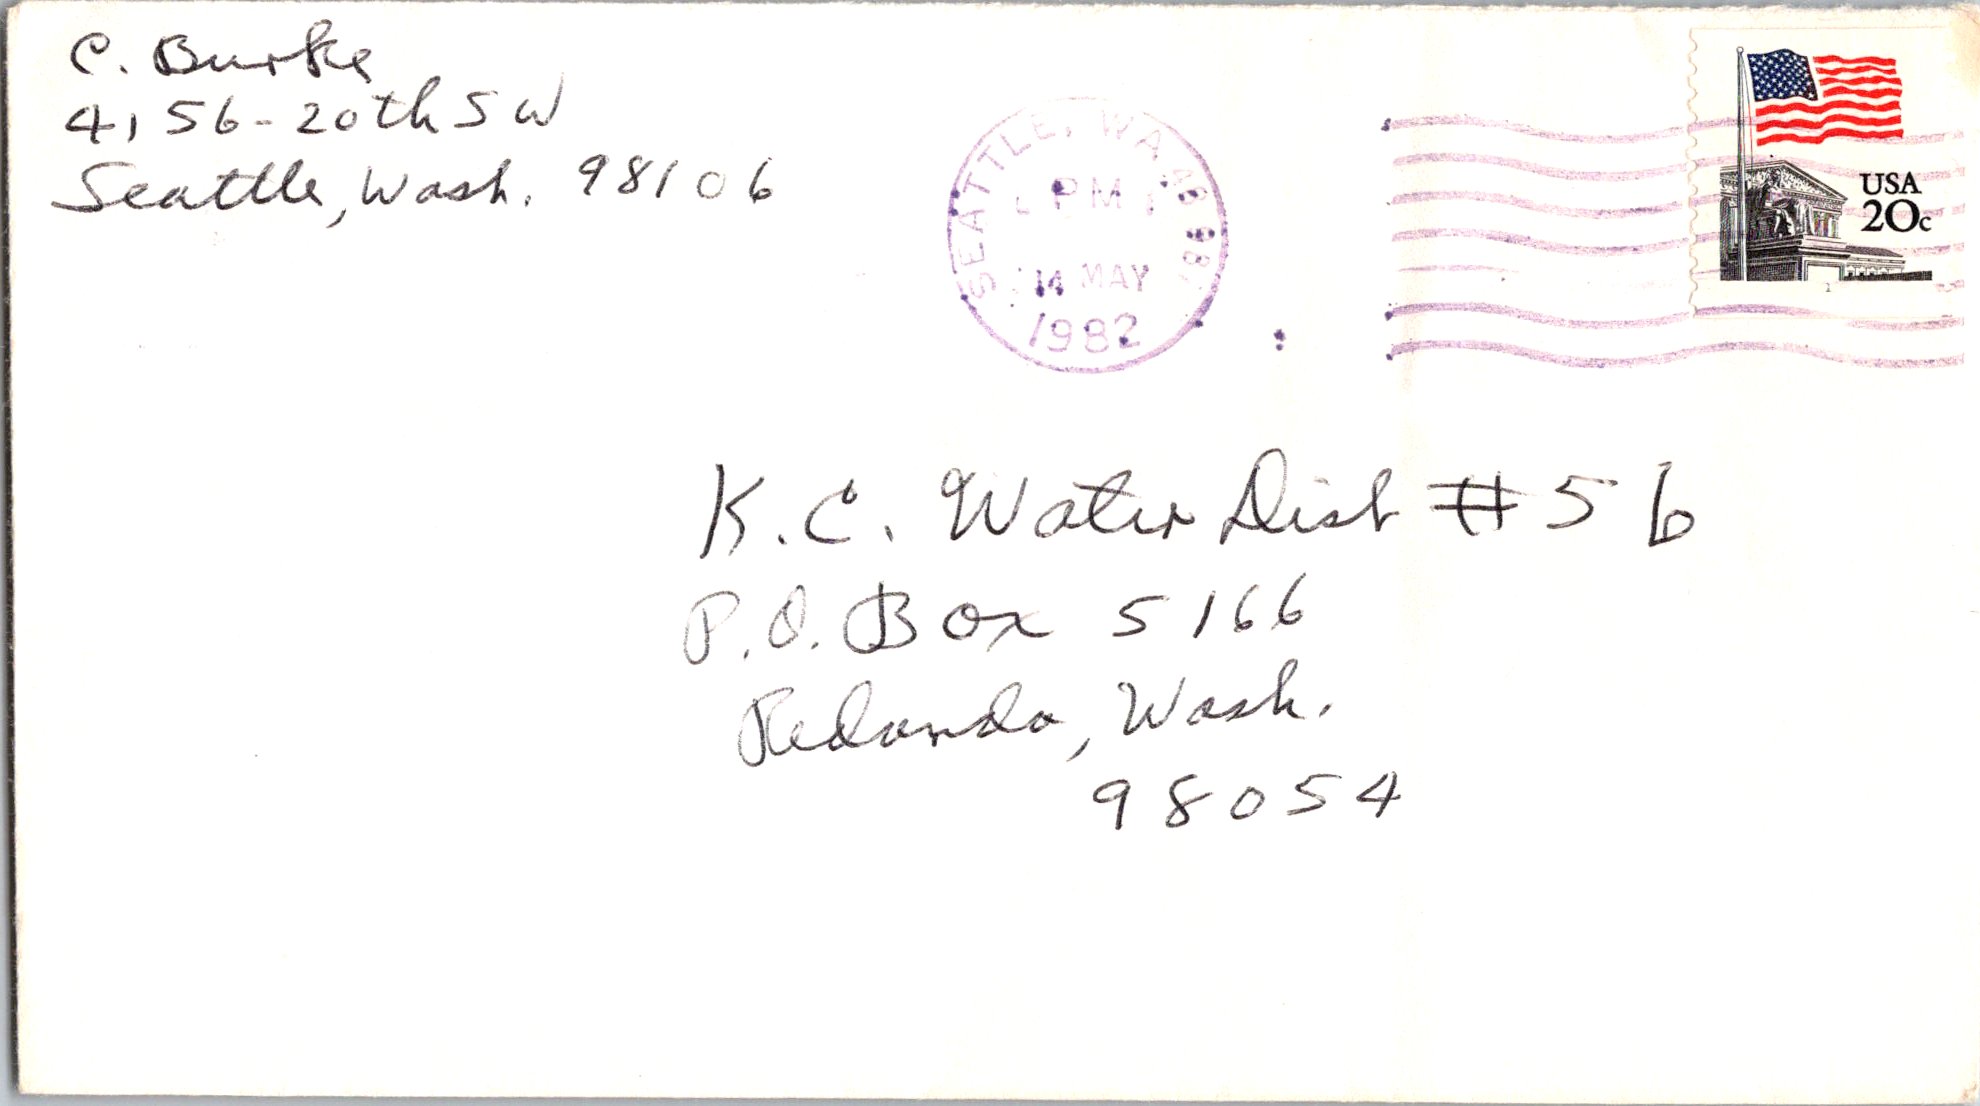 C. Burke
4156-20th SW
Seattle, Wash. 98106
SEATTLE, WA
PM
14 MAY
1982
USA
20c
2
K.C. Water Dist #56
P.O. Box 5166
Redondo, Wash.
98054